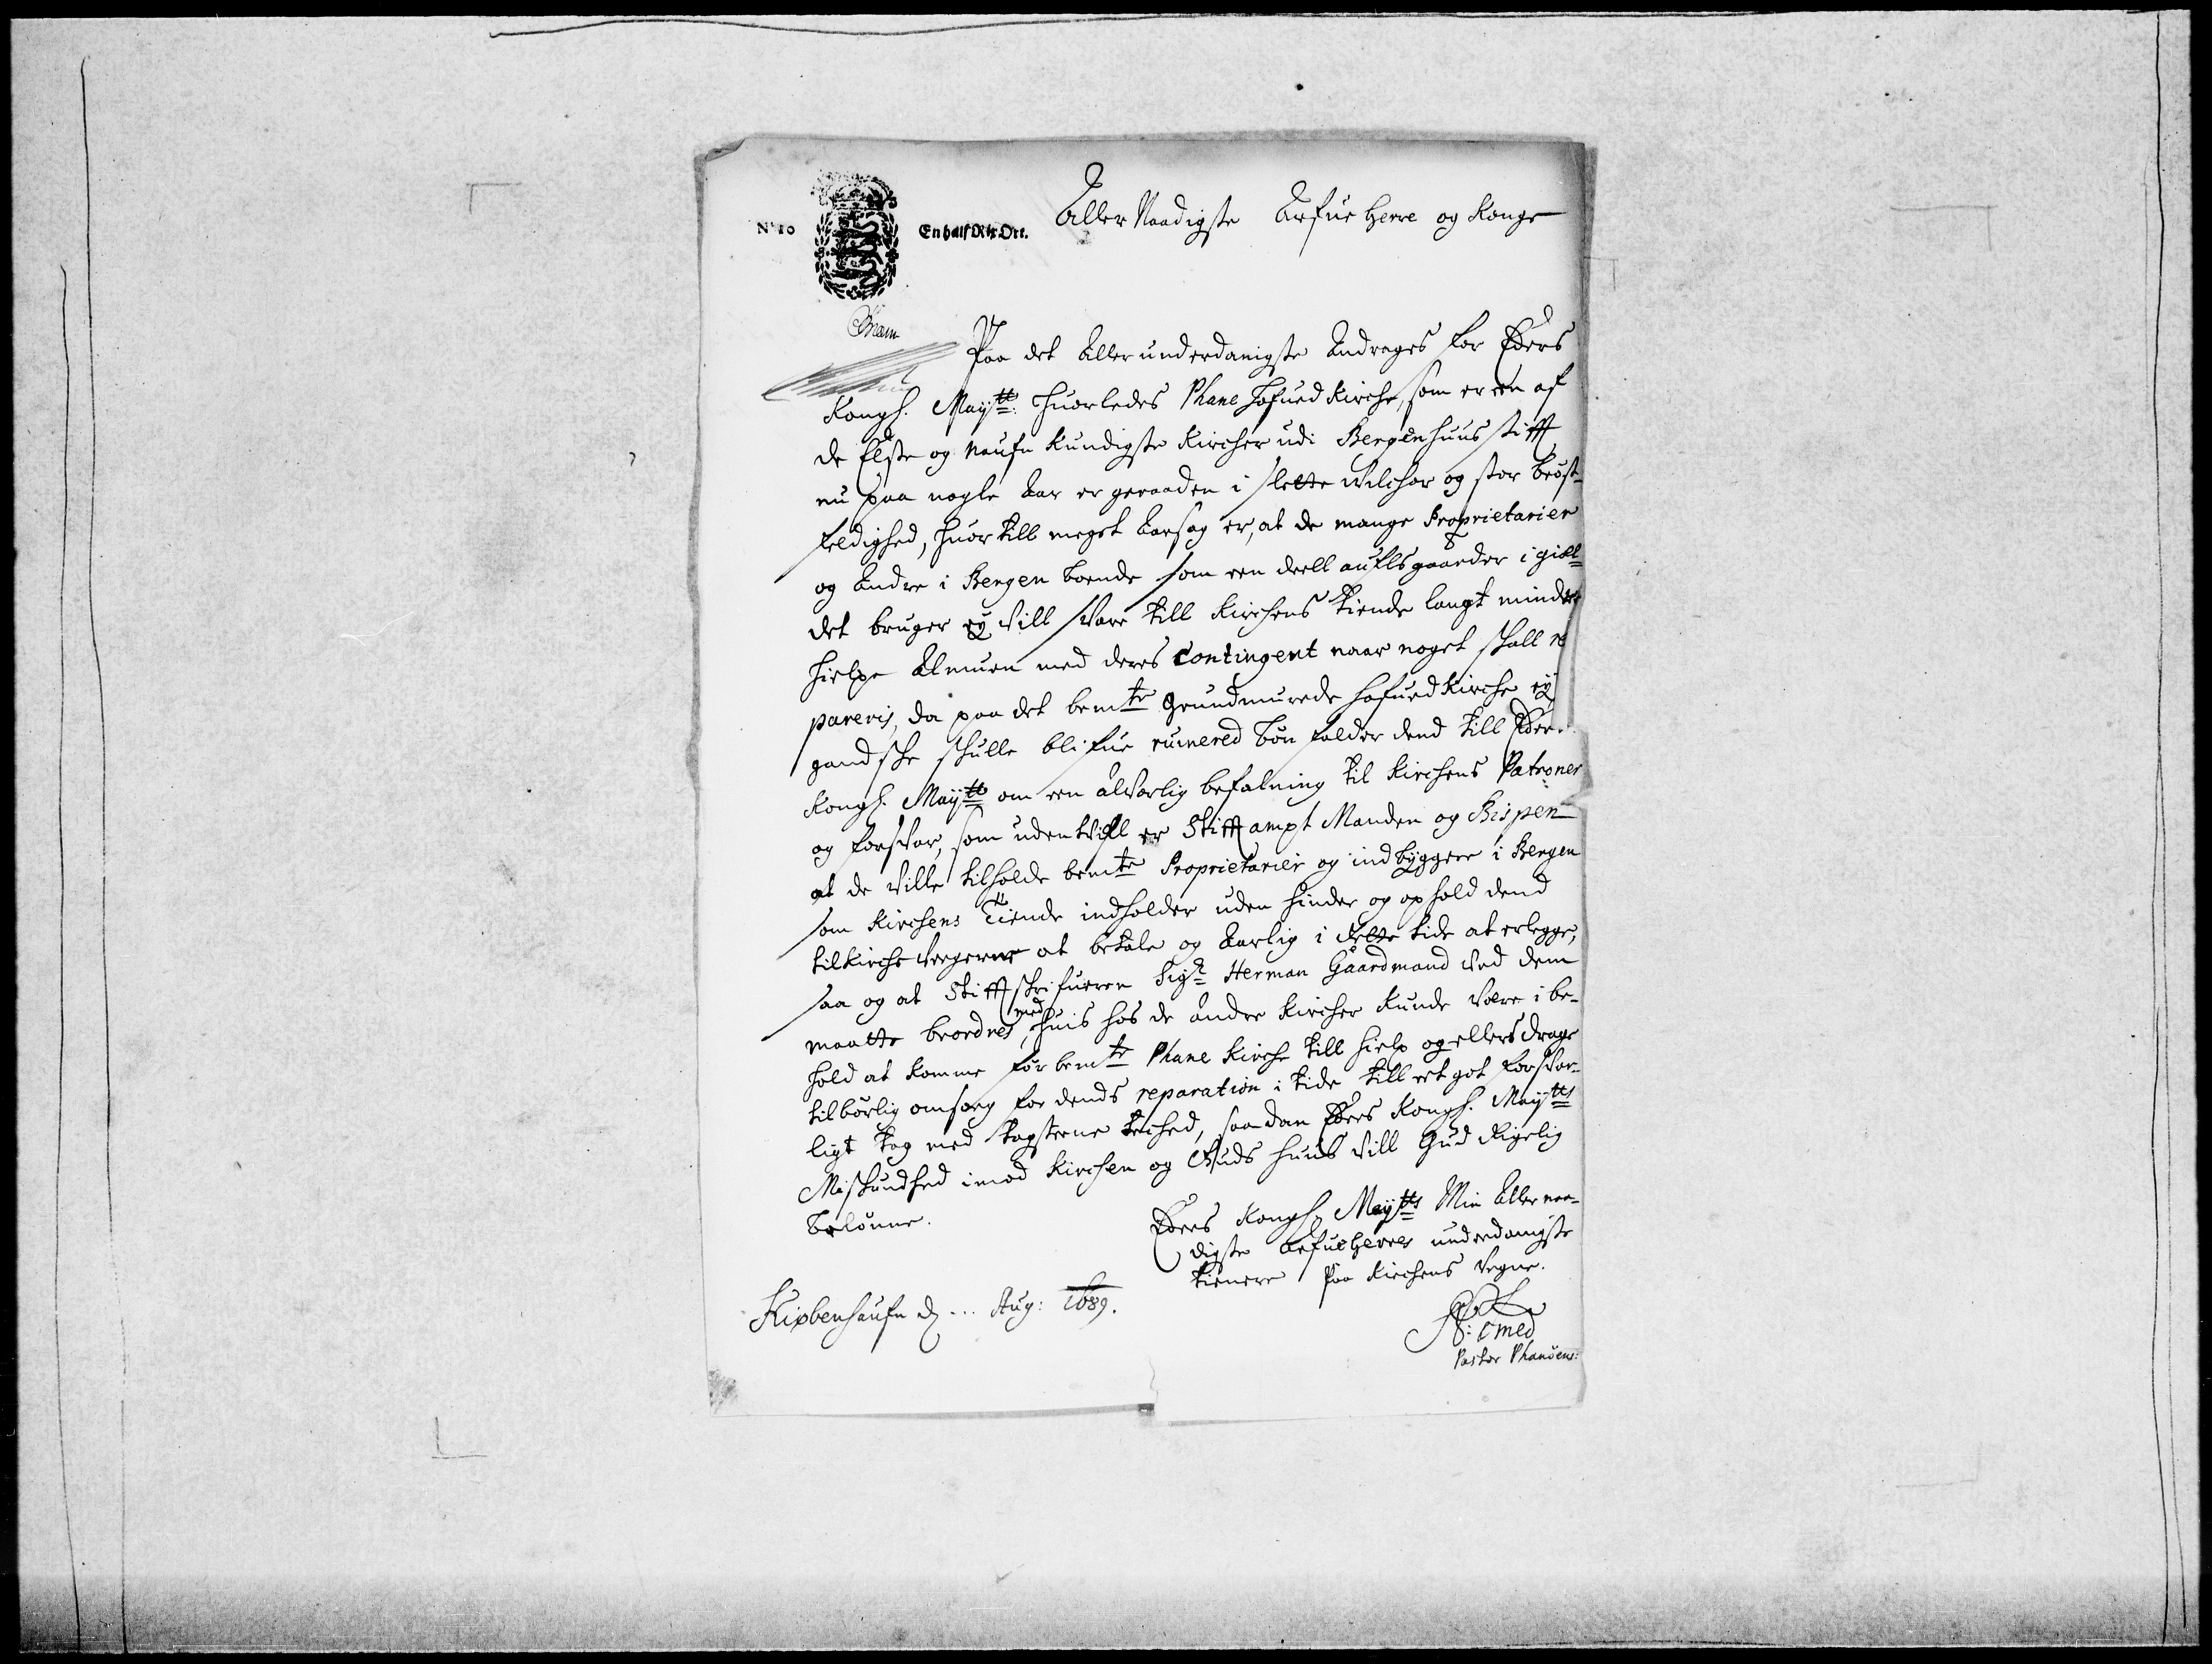 No 10
En half Rix Ort.
Aller Naadigste Arfue Herre og Konge
Paa det Allerunderdanigste Andrages for Eders
Kongl. Maytt: huorledes Phane Hofued Kirche, som er een af
de Elste og Naufn kundigste Kircher udi Bergenhuus stifft
nu paa nogle Aar er geraaden i slette vilchor og stor bröst-
feldighed, huortill megst Aarsag er, at de mange Proprietarier
og Andre i Bergen boende som een deell aufflsgaarder i giel=
det bruger ey vill svare till Kirchens tiende langt mindre
hielpe Almuen med deres Contingent naar noget skall re
pareris, da paa det bemte grundmurede hofued Kirche ey
gandske skulle blifue ruinered bön falder dend till Eders
Kongl. Maytt om een alvorlig befalning til Kirchens Patroner
og forsvar, som uden tvifl er Stifftampt Manden og Bispen
at de ville tilholde bemte Proprietarier og indbyggere i Bergen
som Kirchens Tiende indholder uden hinder og ophold dend
til Kirche Vergerne at betale og Aarlig i rette tide at erlegge,
saa og at Stifftskrifueren Sigr Herman Gaardmand ved dem
maatte beordres, med huis hos de andre Kircher kunde være i be-
hold at komme for bemte Phane Kirche till hielp og ellers drage
tilbörlig omsorg for dends reparation i tide till et got forsvar-
ligt tag med tagsteene teched, saadan Eders Kongl. Maytts
Miskundhed imod Kirchen og Guds huus vill Gud Rigelig
belönne.
Eders Kongl. Maytts Min Aller naa-
digste arfueherres underdanigste
tienere Paa Kirchens Vegne.
Kiøbenhaufn d. ... Aug: 1689.
Pastor Phanöens: